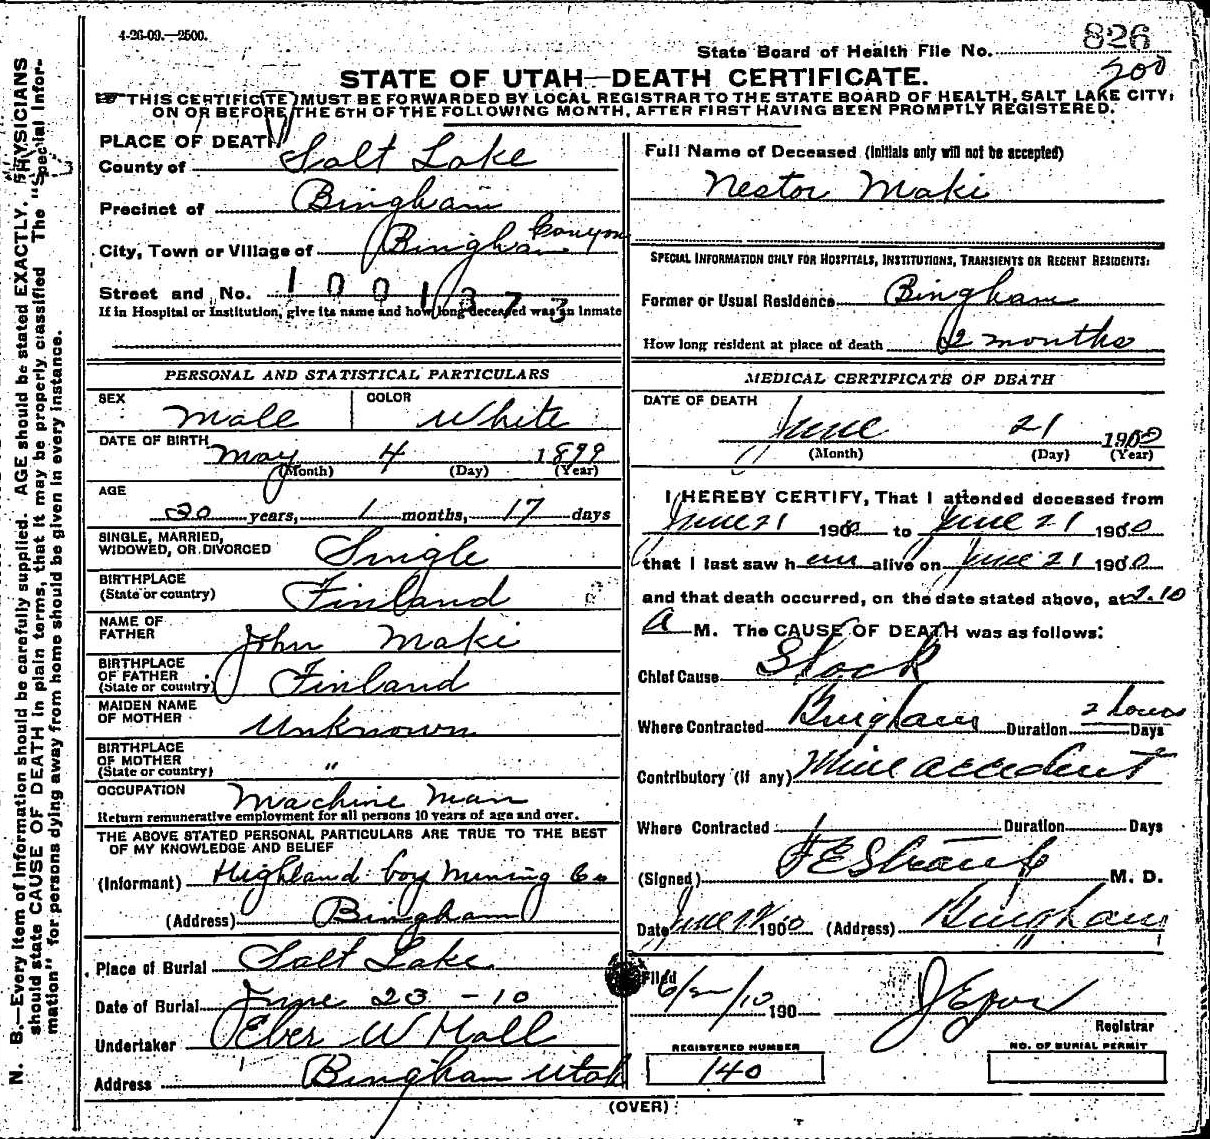 4-26-09.—2500.
State Board of Health File No. 826
200
STATE OF UTAH—DEATH CERTIFICATE.
THIS CERTIFICATE MUST BE FORWARDED BY LOCAL REGISTRAR TO THE STATE BOARD OF HEALTH, SALT LAKE CITY,
ON OR BEFORE THE 5TH OF THE FOLLOWING MONTH, AFTER FIRST HAVING BEEN PROMPTLY REGISTERED.
PLACE OF DEATH
County of Salt Lake
Precinct of Bingham
City, Town or Village of Bingham Canyon
Street and No. 1001373
If in Hospital or Institution, give its name and how long deceased was an Inmate
PERSONAL AND STATISTICAL PARTICULARS
SEX Male COLOR White
DATE OF BIRTH May 4 1899
(Month) (Day) (Year)
AGE
20 years, 1 months, 17 days
SINGLE, MARRIED,
WIDOWED, OR DIVORCED Single
BIRTHPLACE
(State or country) Finland
NAME OF
FATHER John Maki
BIRTHPLACE
OF FATHER
(State or country) Finland
MAIDEN NAME
OF MOTHER Unknown
BIRTHPLACE
OF MOTHER
(State or country) "
OCCUPATION Machine Man
Return remunerative employment for all persons 10 years of age and over.
THE ABOVE STATED PERSONAL PARTICULARS ARE TRUE TO THE BEST
OF MY KNOWLEDGE AND BELIEF
(Informant) Highland boy Mining Co
(Address) Bingham
Place of Burial Salt Lake
Date of Burial June 23 - 10
Undertaker Eber W Hall
Address Bingham Utah
Full Name of Deceased (Initials only will not be accepted)
Nestor Maki
SPECIAL INFORMATION ONLY FOR HOSPITALS, INSTITUTIONS, TRANSIENTS OR RECENT RESIDENTS:
Former or Usual Residence Bingham
How long resident at place of death 2 months
MEDICAL CERTIFICATE OF DEATH
DATE OF DEATH
June 21 190
(Month) (Day) (Year)
I HEREBY CERTIFY, That I attended deceased from
June 21 190 to June 21 190
that I last saw h im alive on June 21 190
and that death occurred, on the date stated above, at 2.10
A M. The CAUSE OF DEATH was as follows:
Chief Cause Shock
Where Contracted Bingham Duration 2 hours Days
Contributory (if any) Mine accident
Where Contracted Duration Days
(Signed) F E Straup M. D.
Date June 190 (Address) Bingham
Filed 6/ /10 190
Registrar
REGISTERED NUMBER
140
NO. OF BURIAL PERMIT
(OVER)
N. B.—Every item of information should be carefully supplied. AGE should be stated EXACTLY. PHYSICIANS
should state CAUSE OF DEATH in plain terms, that it may be properly classified The "Special Infor-
mation" for persons dying away from home should be given in every instance.